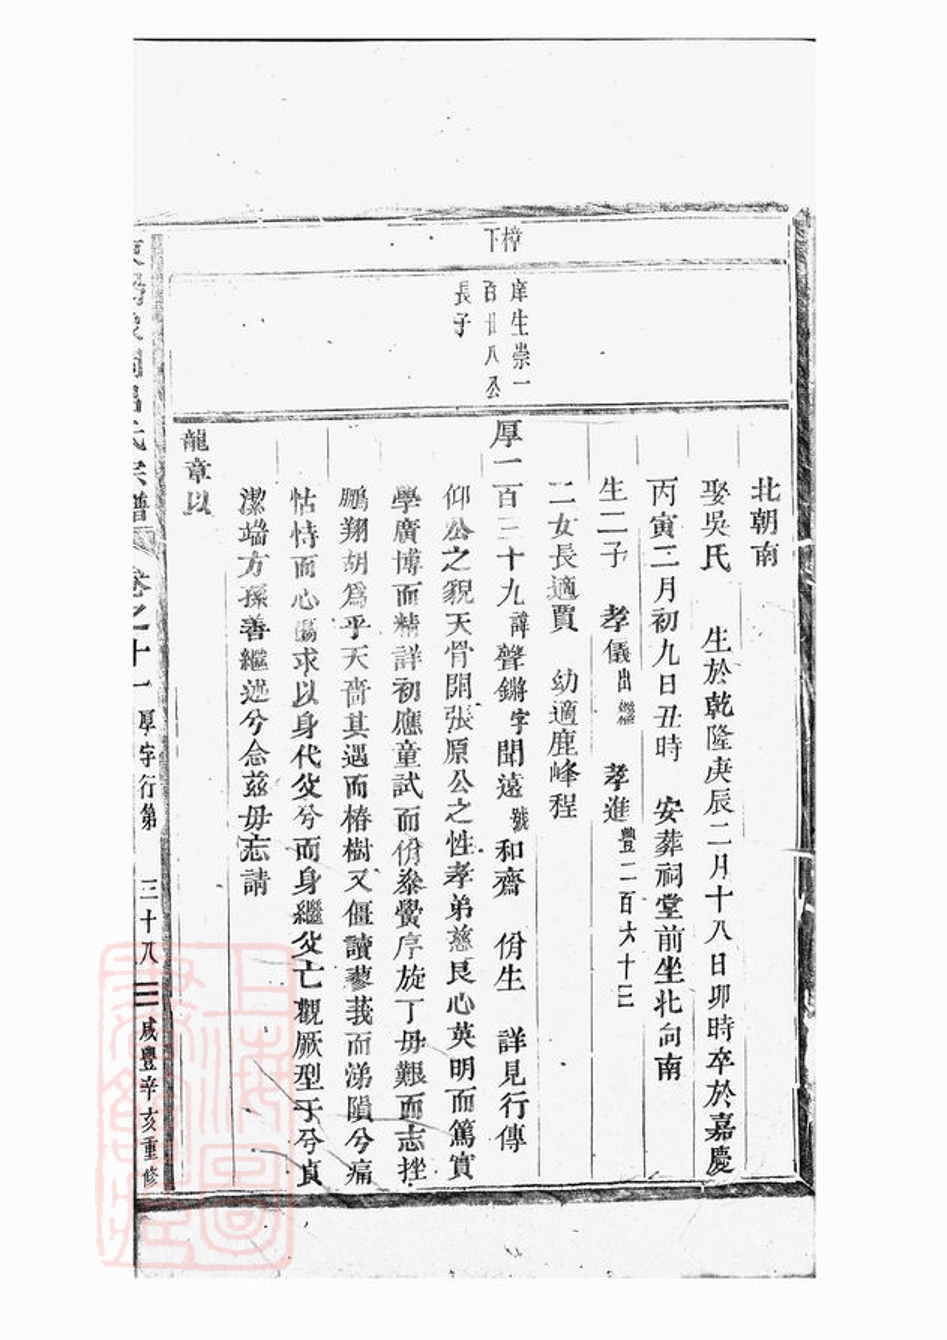 樟下
庠生崇一
百廿八公
長子
北朝南
娶吳氏 生於乾隆庚辰二月十八日卯時卒於嘉慶
丙寅三月初九日丑時 安葬祠堂前坐北向南
生二子 孝儀出繼 孝進豐二百六十三
二女長適賈 幼適鹿峰程
厚一百三十九諱聲鏘字聞遠號和齋 佾生 詳見行傳
仰公之貌天骨開張原公之性孝弟慈良心英明而篤實
學廣博而精詳初應童試而佾叅黌序旋丁毋艱而志挫
鵬翔胡爲乎天嗇其遇而椿樹又僵讀蓼莪而涕隕兮痛
怙恃而心傷求以身代父兮而身繼父亡觀厥型于兮貞
潔端方孫善繼述兮念茲毋忘請
龍章以
呂氏宗譜 卷之十一 厚字行第 三十八 咸豐辛亥重修